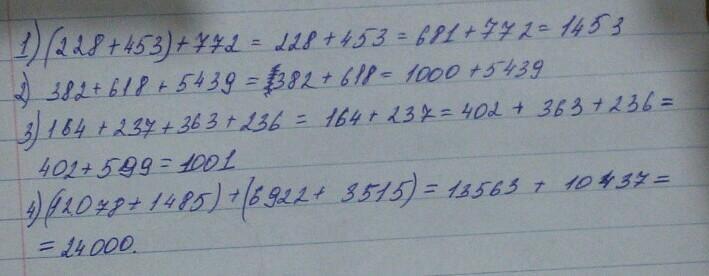 1) (228+453)+772 = 228+453 = 681+772 = 1453
2) 382+618+5439 = 382+618 = 1000+5439
3) 164+237+363+236 = 164+237 = 402 + 363+236 =
402+599 = 1001
4) (12078+1485)+(6922+ 3515) = 13563 + 10437 =
= 24000.